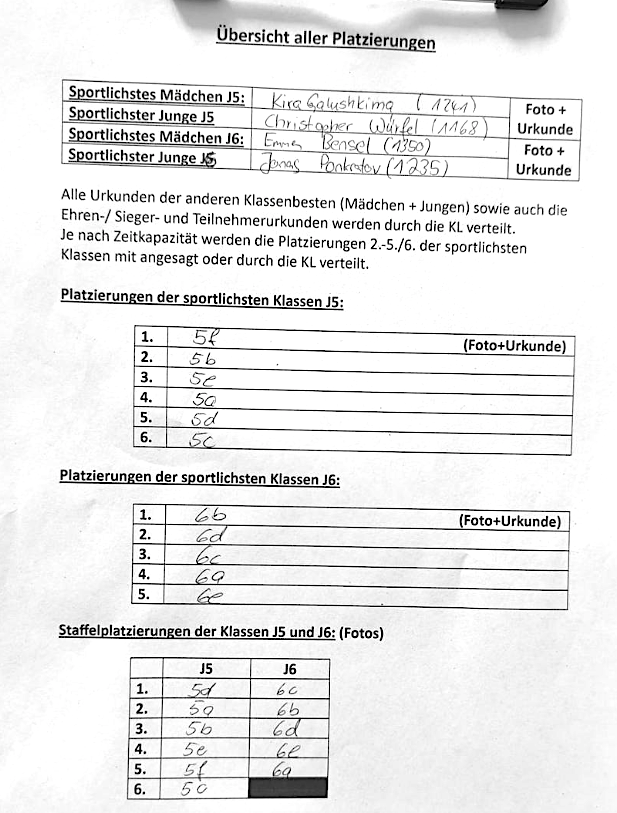 Übersicht aller Platzierungen
Sportlichstes Mädchen J5: Kira Galushkima (1241) Foto +
Sportlichster Junge J5 Christopher Würfel (1168) Urkunde
Sportlichstes Mädchen J6: Emma Bensel (1350) Foto +
Sportlichster Junge J6 Jonas Pankratov (1235) Urkunde
Alle Urkunden der anderen Klassenbesten (Mädchen + Jungen) sowie auch die
Ehren-/ Sieger- und Teilnehmerurkunden werden durch die KL verteilt.
Je nach Zeitkapazität werden die Platzierungen 2.-5./6. der sportlichsten
Klassen mit angesagt oder durch die KL verteilt.
Platzierungen der sportlichsten Klassen J5:
1. 5f (Foto+Urkunde)
2. 5b
3. 5e
4. 5a
5. 5d
6. 5c
Platzierungen der sportlichsten Klassen J6:
1. 6b (Foto+Urkunde)
2. 6d
3. 6c
4. 6a
5. 6e
Staffelplatzierungen der Klassen J5 und J6: (Fotos)
J5 J6
1. 5d 6c
2. 5a 6b
3. 5b 6d
4. 5e 6e
5. 5f 6a
6. 5c